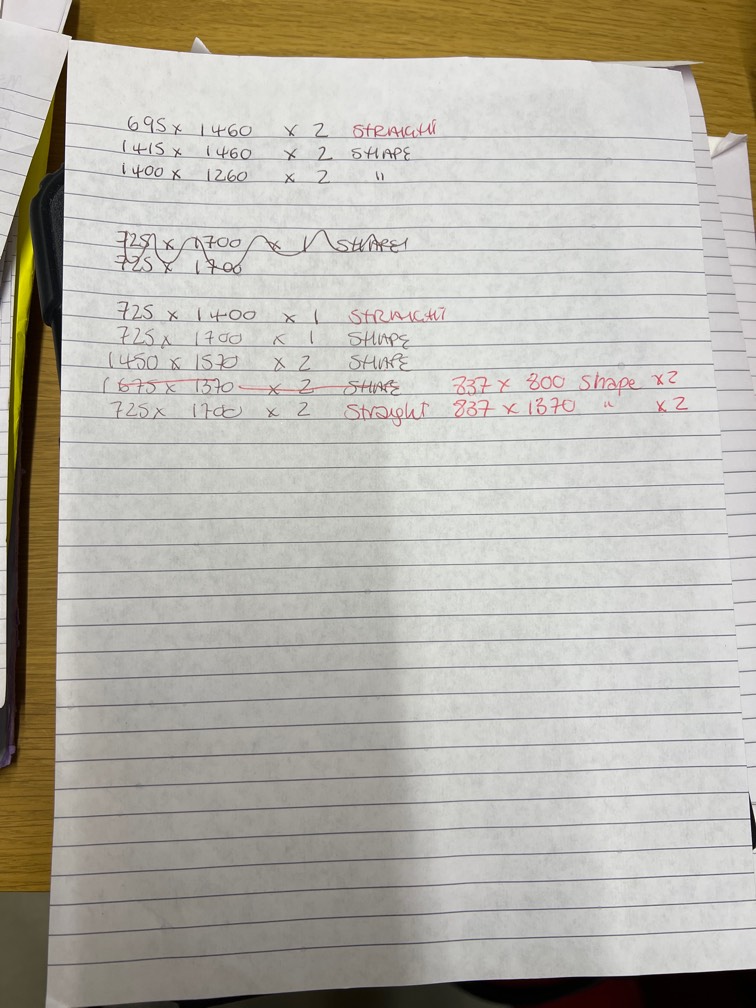 695 x 1460 x 2 STRAIGHT
1415 x 1460 x 2 SHAPE
1400 x 1260 x 2 "
725 x 1700 x 1 SHAPE
725 x 1700
725 x 1400 x 1 STRAIGHT
725 x 1700 x 1 SHAPE
1450 x 1570 x 2 SHAPE
1675 x 1370 x 2 SHAPE 837 x 800 Shape x2
725 x 1700 x 2 Straight 837 x 1370 " x 2